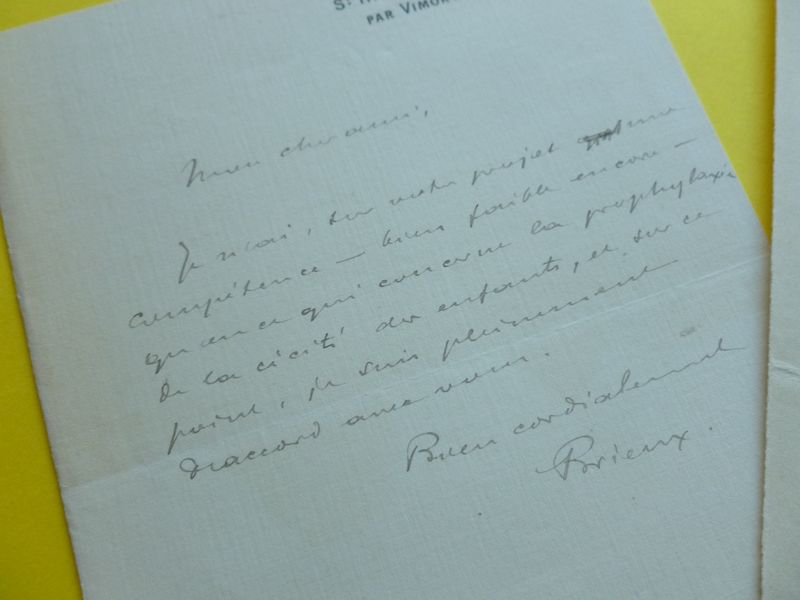 St
PAR VIMOU
Mon cher ami,
Je n'ai, sur votre projet une
compétence — bien faible encore —
qu'en ce qui concerne la prophylaxie
de la cécité des enfants, et sur ce
point, je suis pleinement
d'accord avec vous.
Bien cordialement
Brieux.